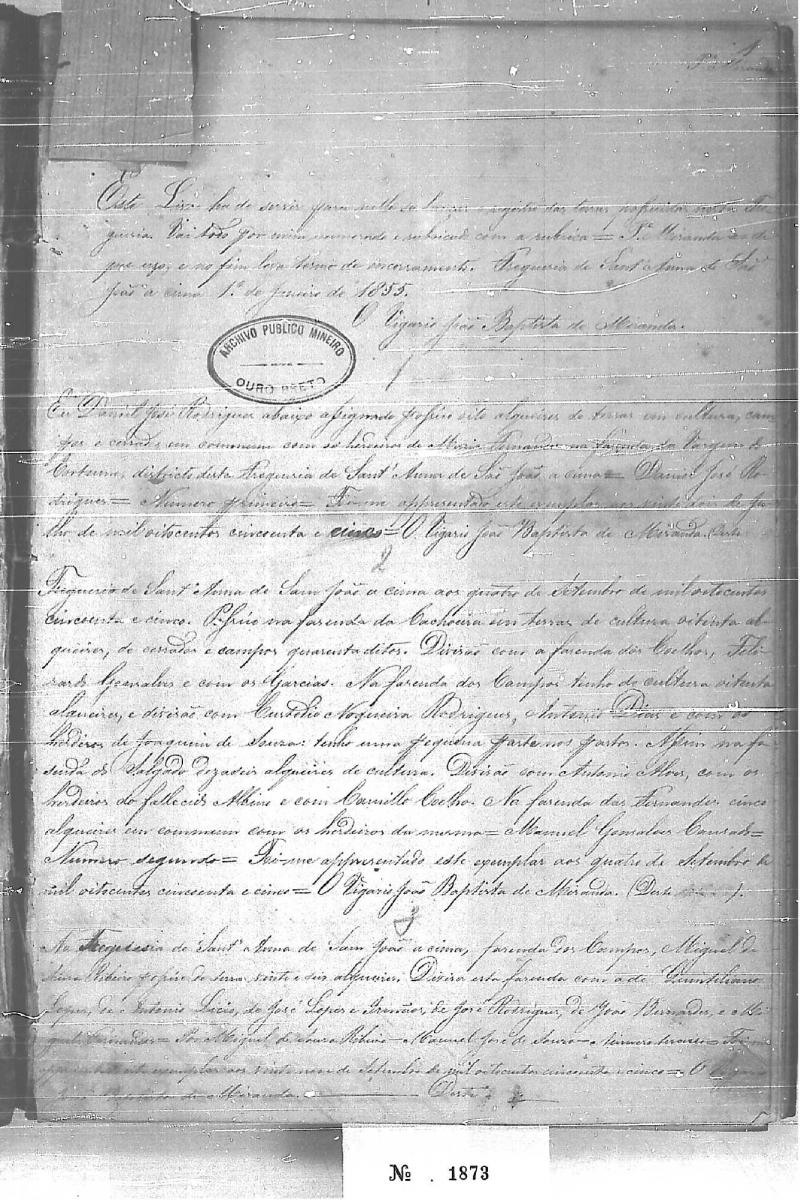 1
Pe. Miranda
Este Livro ha de servir para nelle se lançar o registro das terras possuidas nesta Fre
guezia. Vai todo por mim numerado e rubricado com a rubrica = Pe. Miranda = de
que uzo, e no fim leva termo de encerramento. Freguezia de Sant'Anna de São
João a cima 1º de Janeiro de 1855.
O Vigario João Baptista de Miranda.
ARCHIVO PUBLICO MINEIRO
OURO PRETO
1
Eu Daniel José Rodrigues abaixo assignado possúo oito alqueires de terras em cultura, cam
pos e cerrados em commum com os herdeiros de Maria Fernandes na fazenda da Vargem do
districto desta Freguezia de Sant'Anna de São João a cima = Daniel José Ro
drigues = Numero primeiro = Foi-me appresentado este exemplar aos de Ju
lho de mil oitocentos cincoenta e cinco = O Vigario João Baptista de Miranda. Derte
2
Freguezia de Sant'Anna de Sam João a cima aos quatro de Setembro de mil oitocentos
cincoenta e cinco. Possúo na fazenda da Cachoeira em terras de cultura oitenta al
queires, de cerrados e campos quarenta ditos. Divisão com a fazenda dos Coelhos, Feli
zardo Gonsalves e com os Garcias. Na fazenda dos Campos tenho de cultura oitenta
alqueires, e divisão com Custodio Nogueira Rodrigues, Antonio Dias e com os
herdeiros de Joaquim de Souza: tenho uma pequena parte nos pastos. Assim na fa
senda do Salgado dezaseis alqueires de cultura. Divisão com Antonio Alves, com os
herdeiros do fallecido Albino e com Camillo Coelho. Na fazenda das Fernandes cinco
alqueires em commum com os herdeiros da mesma = Manuel Gonsalves
Numero segundo = Foi-me appresentado este exemplar aos quatro de Setembro de
mil oitocentos cincoenta e cinco = O Vigario João Baptista de Miranda. (Derte ).
3
Na Freguesia de Sant'Anna de Sam João a cima, fazenda dos Campos, Miguel de
Souza Ribeiro possúe de terra vinte e seis alqueires. Divisa esta fazenda com a de Quintiliano
Lopes, de Antonio Lucio, de José Lopes e Irmãos, de José Rodrigues, de João Bernardes, e Mi
guel Fernandes = Por Miguel de Souza Ribeiro = Manuel José de Souza = Numero terceiro = Foi-me
appresentado este exemplar aos vinte nove de Setembro de mil oitocentos cincoenta e cinco = O Vigario
João Baptista de Miranda. Derte
№ . 1873